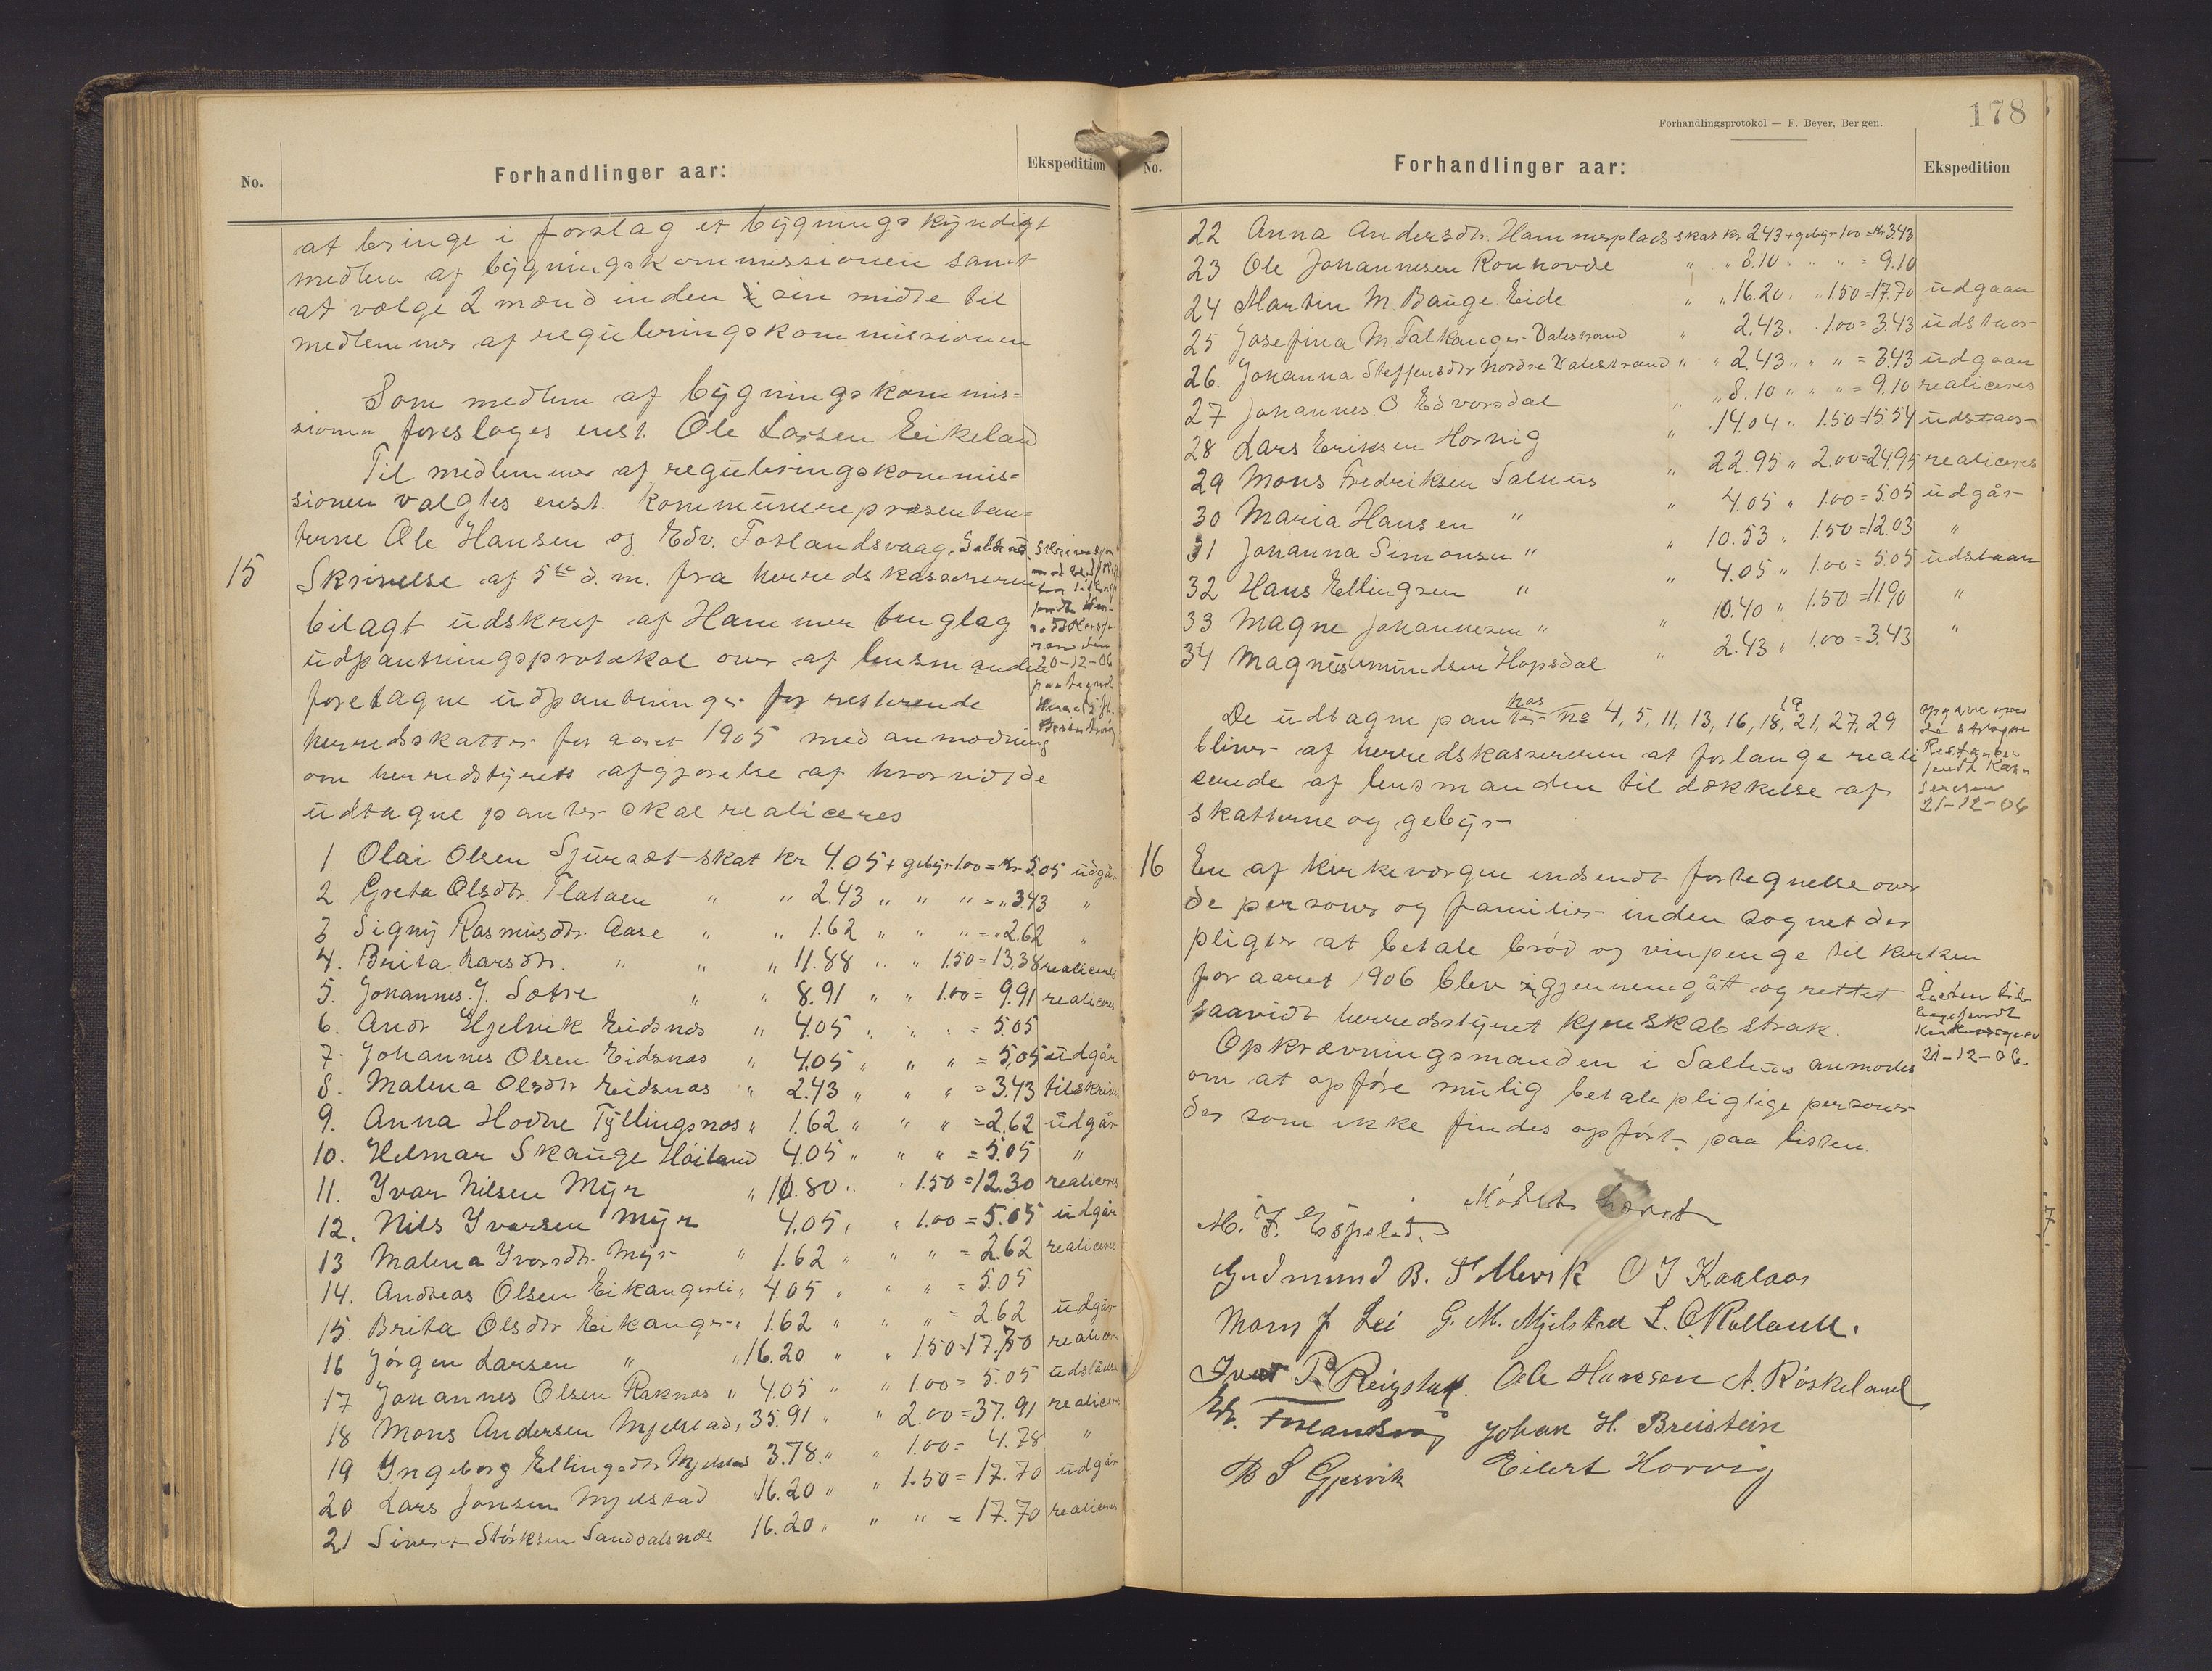 No.
Forhandlinger aar:
Ekspedition
at bringe i forslag et bygningskyndigt
medlem af bygningskommissionen samt
at vælge 2 mænd inden sin midte til
medlemmer af reguleringskommissionen
Som medlem af bygningskommis-
sionen foreslages enst. Ole Larsen Eikeland
Til medlemmer af reguleringskommis-
sionen valgtes enst. kommunerepræsentan-
terne Ole Hansen og Edv. Foslandsvaag, Salhus
15 Skrivelse af 5te d.m. fra herredskassereren
bilagt udskrif af Hammer tinglag
udpantningsprotokol over af lensmanden
foretagne udpantninger for resterende
herredskatter for aaret 1905 med anmodning
om herredstyrets afgjørelse af hvorvidt de
udtagne panter skal realiceres
20-12-06
1. Olai Olsen Sjursæt skat kr 4.05 + gebyr 1.00 = Kr. 5.05 udgår
2 Greta Olsdtr. Flataen " " 2.43 " " " = " 3.43 "
3 Signy Rasmusdtr. Aase " " 1.62 " " " = " 2.62 "
4. Brita Larsdtr. " " " 11.88 " " 1.50 = 13.38 realiceres
5. Johannes J. Sætre " " 8.91 " " 1.00 = 9.91 realiceres
6. Andr Hjelvik Eidsnes " 4.05 " " " = 5.05
7. Johannes Olsen Eidsnæs " 4.05 " " " = 5,05 udgår
8. Malena Olsdtr Eidsnæs " 2.43 " " " = 3.43 tilskrives
9. Anna Hodne Tyllingsnæs " 1.62 " " " = 2.62 udgår
10. Helmar Skauge Høiland 4.05 " " " = 5.05 "
11. Ivar Nilsen Myr " 10.80 " " 1.50 = 12.30 realiceres
12. Nils Ivarsen Myr 4.05 " " 1.00 = 5.05 udgår
13 Malena Ivarsdtr. Myr " 1.62 " " " = 2.62 realiceres
14. Andreas Olsen Eikangerli " 4.05 " " " = 5.05
15. Brita Olsdtr Eikanger " 1.62 " " " = 2.62 udgår
16 Jørgen Larsen " " 16.20 " " 1.50 = 17.70 realiceres
17 Johannes Olsen Raknæs " 4.05 " " 1.00 = 5.05 udstaar
18 Mons Andersen Mjelstad " 35.91 " " 2.00 = 37.91 realiceres
19 Ingeborg Ellingsdtr Mjelstad 3.78 " " 1.00 = 4.78 "
20 Lars Jonsen Mjelstad " 16.20 " " 1.50 = 17.70 udgår
21 Sivert Størksen Sanddalsnæs 16.20 " " " = 17.70 realiceres
178
Forhandlingsprotokol — F. Beyer, Bergen.
No.
Forhandlinger aar:
Ekspedition
22 Anna Andersdtr. Hammersplads skat kr 2.43 + gebyr 1.00 = Kr 3.43
23 Ole Johannesen Ronhovde " " 8.10 " " " = 9.10
24 Martin M. Bauge Eide " " 16.20 " " 1.50 = 17.70 udgaar
25 Josefina M. Falkanger Valestrand " 2.43 " 1.00 = 3.43 udstaar
26. Johanna Steffensdtr Nordre Valestrand " " 2.43 " " " = 3.43 udgaar
27 Johannes O. Edvorsdal " " 8.10 " " " = 9.10 realiceres
28 Lars Eriksen Horvig " 14.04 " 1.50 = 15.54 udstaar
29 Mons Fredriksen Salhus " 22.95 " 2.00 = 24.95 realiceres
30 Maria Hansen " " 4.05 " 1.00 = 5.05 udgår
31 Johanna Simonsen " " 10.53 " 1.50 = 12.03 "
32 Hans Ellingsen " " 4.05 " 1.00 = 5.05 udstaar
33 Magne Johannesen " " 10.40 " 1.50 = 11.90 "
34 Magnus Amundsen Hopsdal " 2.43 " 1.00 = 3.43 "
De udtagne panter hos no 4, 5, 11, 13, 16, 18, 19, 21, 27, 29
bliver af herredskassereren at forlange reali
cerede af lensmanden til dækkelse af
skatterne og gebyr
21-12-06
16 En af kirkevergen indsendt fortegnelse over
de personer og familier inden sognet der
pligter at betale brød og vinpenge til kirken
for aaret 1906 blev gjennemgått og rettet
saavidt herredsstyret kjenskab strak.
Opkrævningsmanden i Salhus anmodes
om at opføre mulig betalepligtige personer
der som ikke findes opført paa listen.
Listen til-
bagesendt
Kirkevergen
21-12-06.
Mødet hævet
Gudmund B. Tellevik O J Kaalaas
Mons J Lei G. M. Mjelstad L. O. Rolland.
Ivar P. Reigstad. Ole Hansen A. Røskeland
Johan H. Breistein
B S Gjesvik Eilert Horvig